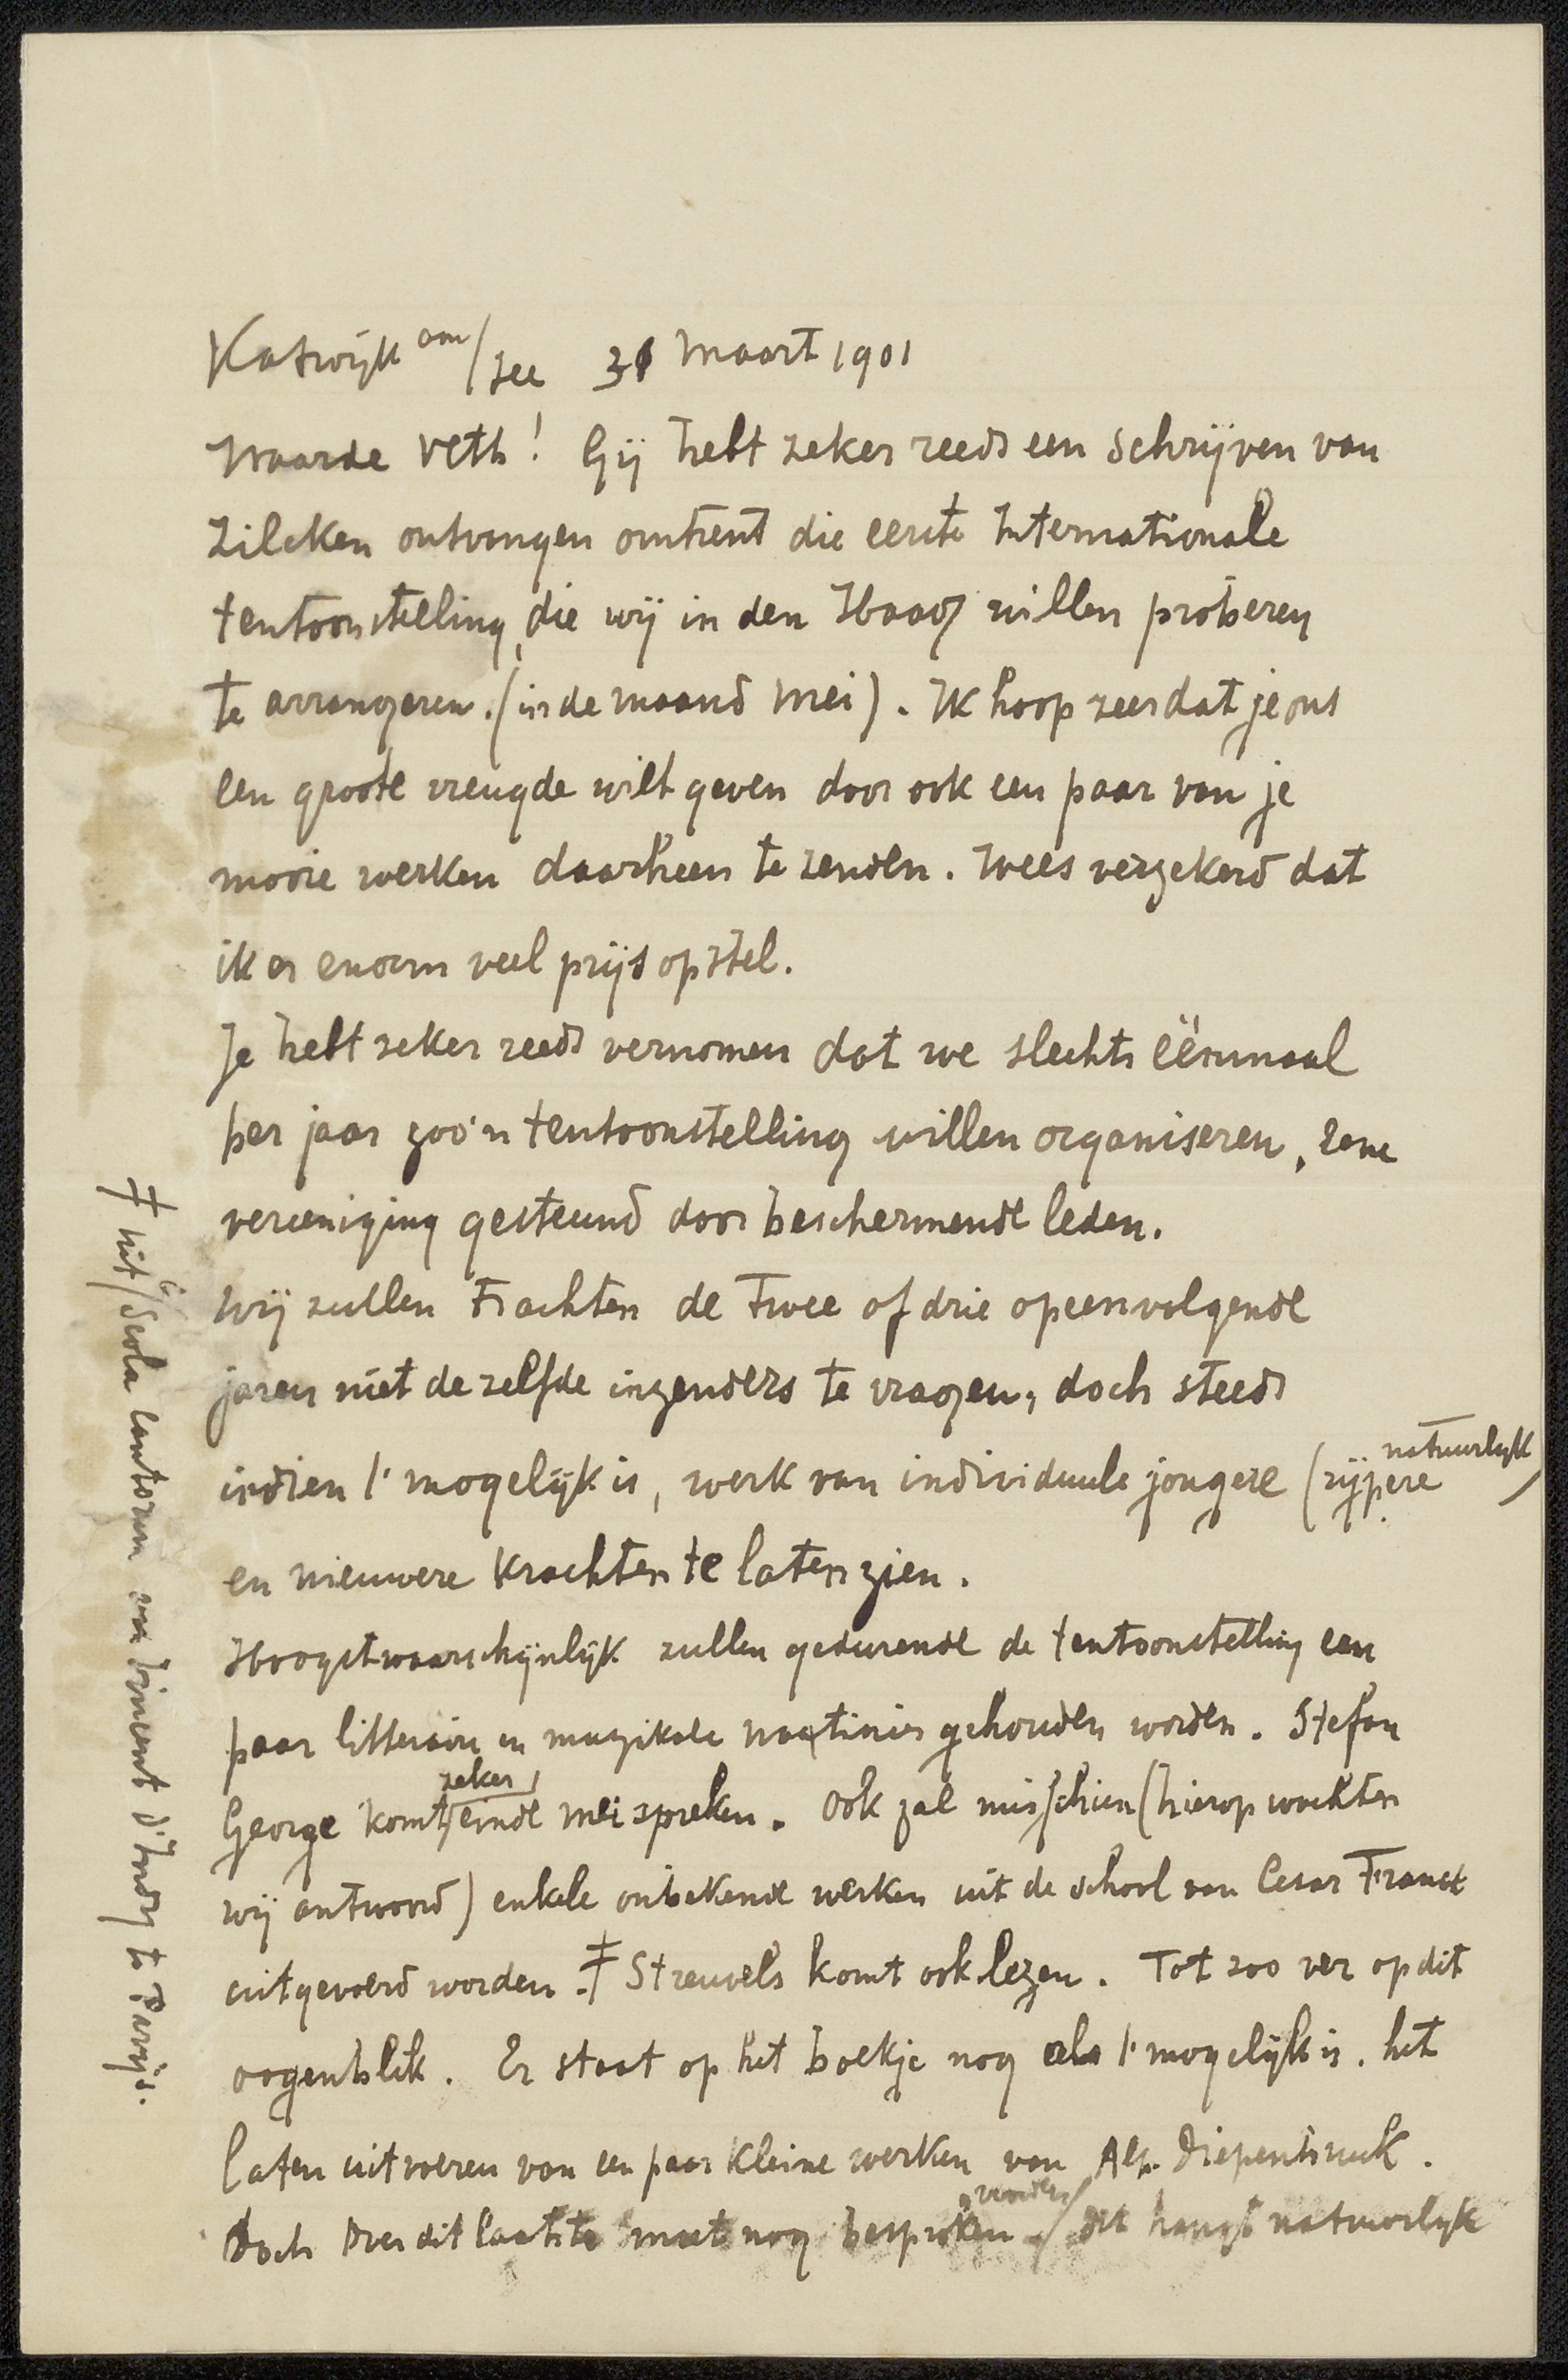 Katwijk aan/zee 31 Maart 1901
Waarde Veth! Gij hebt zeker reeds een schrijven van
Zilcken ontvangen omtrent die eerste Internationale
tentoonstelling, die wij in den Haag willen proberen
te arrangeren. (in de maand Mei). Ik hoop zeer dat je ons
een groote vreugde wilt geven door ook een paar van je
mooie werken daarheen te zenden. Wees verzekerd dat
ik er enorm veel prijs op stel.
Je hebt zeker reeds vernomen dat we slechts éénmaal
per jaar zoo'n tentoonstelling willen organiseren, eene
vereeniging gesteund door beschermende leden.
Wij zullen trachten de twee of drie opeenvolgende
jaren niet de zelfde inzenders te vragen, doch steeds
indien 't mogelijk is, werk van individuele jongere (rijpere natuurlijk)
en nieuwere krachten te laten zien.
Hoogstwaarschijnlijk zullen gedurende de tentoonstelling een
paar litteraire en muzikale matinies gehouden worden. Stefan
George komt zeker einde Mei spreken. Ook zal misschien (hierop wachten
wij antwoord) enkele onbekende werken uit de school van Cesar Franck
uitgevoerd worden. ‡ Streuvels komt ook lezen. Tot zoo ver op dit
oogenblik. Er staat op het boekje nog als 't mogelijk is. het
laten uitvoeren van een paar kleine werken van Alp. Diepenbruck.
Doch over dit laatste moet nog besproken worden / dit hangt natuurlijk
‡ uit / Scola Cantorum van Vincent d'Indy te Parijs.